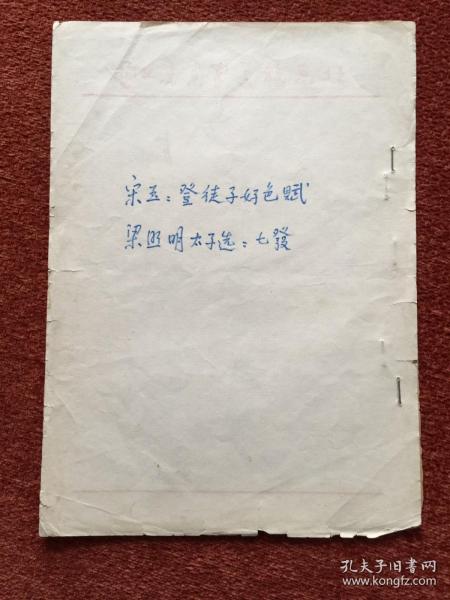 宋玉：登徒子好色赋
梁昭明太子选：七發
孔夫子旧书网
www.kongfz.com